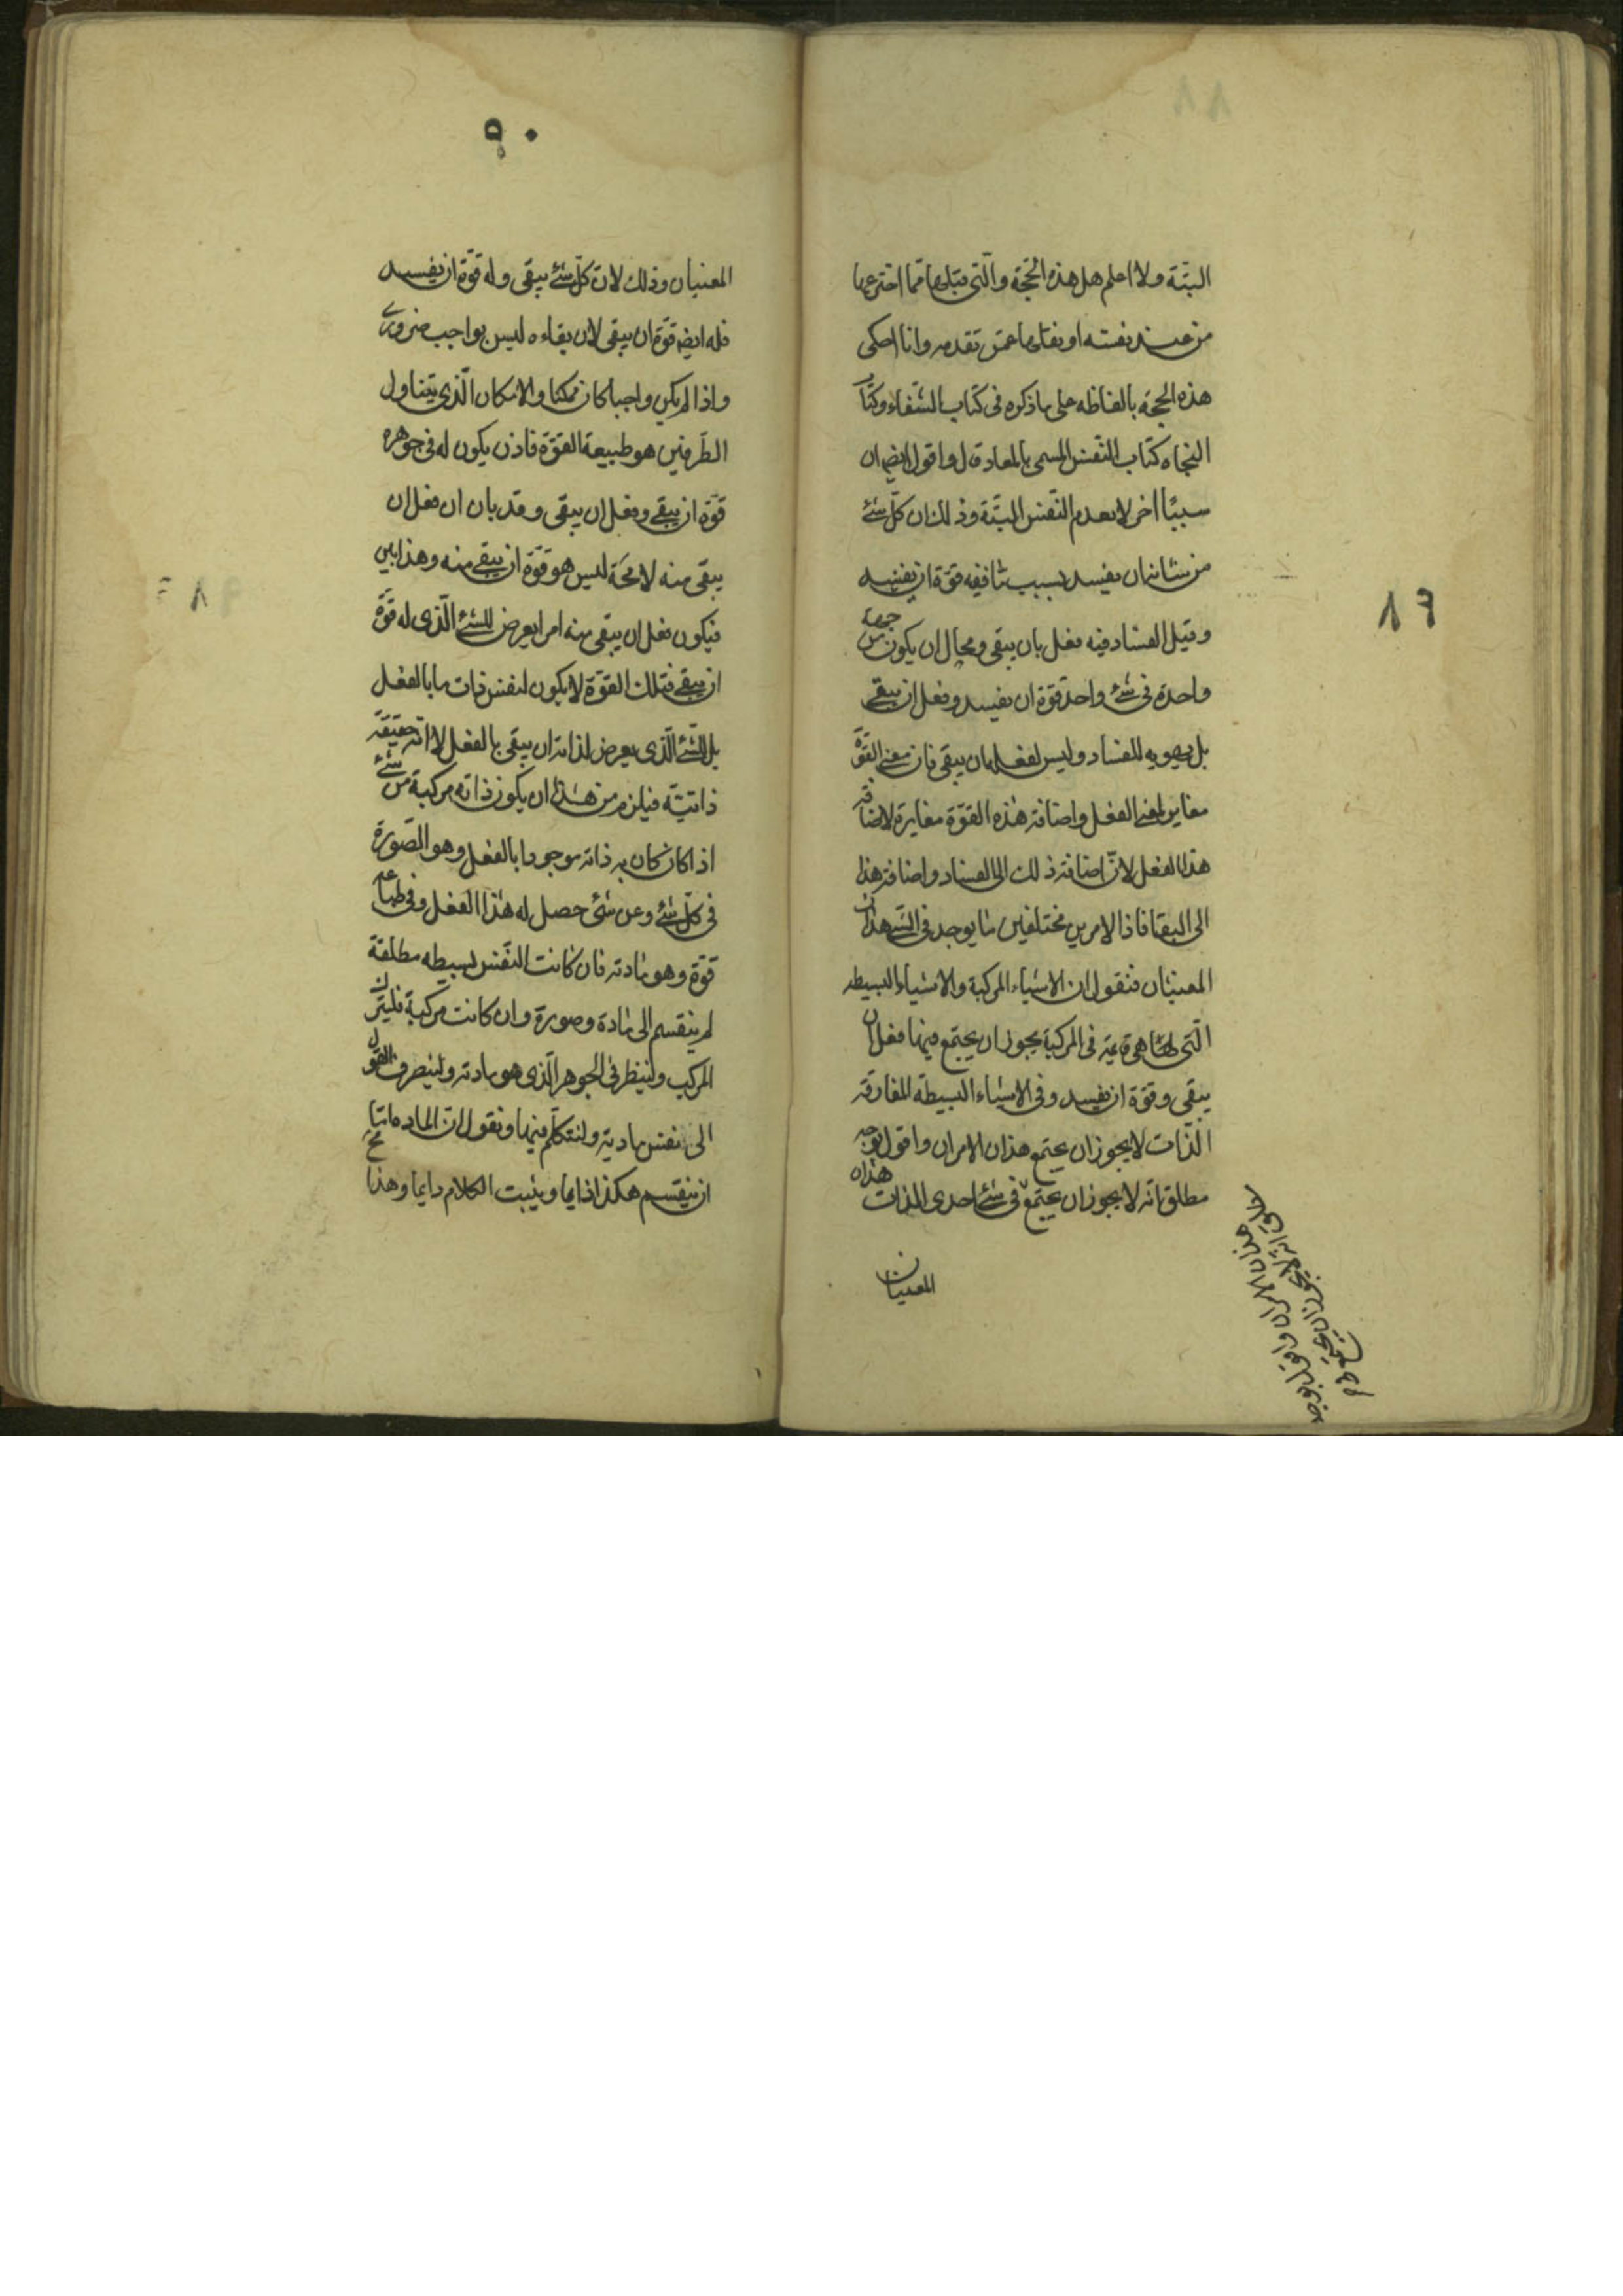 البتّة ولا اعلم هل هذه الحجّة والّتى قبلها ممّا اخترعها
من عند نفسه او نقلها عمّن تقدمه وانا احكى
هذه الحجة بالفاظه على ما ذكره فى كتاب الشّفاء وكتاب
النجاه كتاب النّفس المسمى بالمعاد قال واقول ايضا ان
سببًا اخر لا يعدم النّفس البتّة وذلك ان كلّ شئ
من شانه ان يفسد بسبب ما ففيه قوّة ان يفسد
وقبل الفساد فيه فعل بان يبقى ومحال ان يكون من جهة
واحدة فى شئ واحد قوّة ان يفسد وفعل ان يبقى
بل تهيوه للفساد وليس لفعله ان يبقى فان معنى القوّة
مغاير لمعنى الفعل واضافة هذه القوّة مغايرة لاضافة
هذا الفعل لانّ اضافة ذلك الى الفساد واضافة هذا
الى البقا فاذا لامرين مختلفين ما يوجد فى الشئ هذان
المعنيان فنقول ان الاشياء المركبة والاشياء البسيطه
الّتى هى قائمة فى المركبة يجوز ان يجتمع فيها فعل ان
يبقى وقوّة ان يفسد وفى الاشياء البسيطه المفارقه
الذّات لا يجوز ان يجتمع هذان الامران واقول بوجه
مطلق انّه لا يجوز ان يجتمع فى شئ احدى الذات هذان
المعنيان
هذان الامران واقول بوجه
انّه لا يجوز ان يجتمع
١٦
٩٠
المعنيان وذلك لانّ كلّ شئ يبقى وله قوّة ان يفسد
فله ايضا قوّة ان يبقى لان بقاءه ليس بواجب ضرورى
واذا لم يكن واجبا كان ممكنا والامكان الّذى يتناول
الطّرفين هو طبيعة القوّة فاذن يكون له فى جوهره
قوّة ان يبقى وفعل ان يبقى وقد بان ان فعل ان
يبقى منه لا محة ليس هو قوّة ان يبقى منه وهذا بين
فيكون فعل ان يبقى منه امرا يعرض للشئ الّذى له قوّة
ان يبقى فتلك القوّة لا يكون لنفس ذات ما بالفعل
بل للشّئ الّذى يعرض لذاته ان يبقى بالفعل لا انّه حقيقة
ذاتيّه فيلزم من هذا ان يكون ذاته مركبة من شئ
اذا كان كان به ذاته موجودا بالفعل وهو الصّورة
فى كلّ شئ وعن شئ حصل له هذا الفعل وفى طباعه
قوّة وهو مادته فان كانت النفس بسيطه مطلقة
لم ينقسم الى مادة وصورة وان كانت مركبة فليترك
المركب ولينظر فى الجوهر الّذى هو مادته ولنصرف القول
الى نفس مادته ولنتكلم فيها ونقول انّ الماده اما
ان ينقسم هكذا دايما ويثبت الكلام دايما وهذا مح